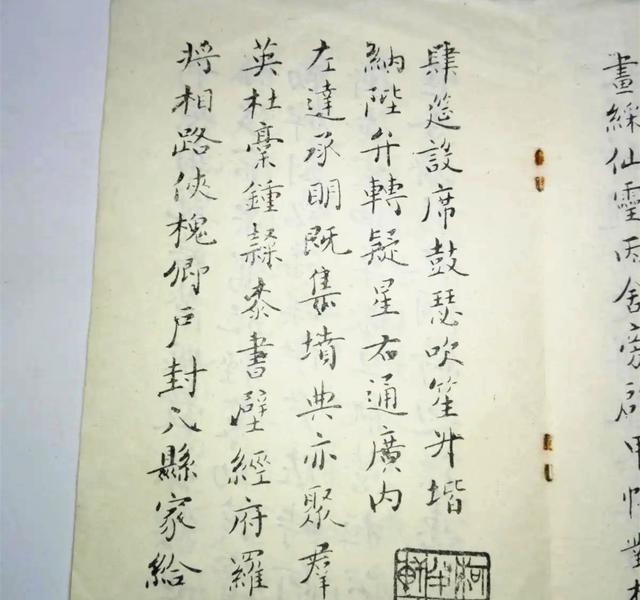 畫綵仙靈丙舍旁啟甲帳對
肆筵設席鼓瑟吹笙升堦
納陛弁轉疑星右通廣內
左達承明既集墳典亦聚羣
英杜稾鍾隸桼書壁經府羅
將相路俠槐卿戶封八縣家給
柯軒